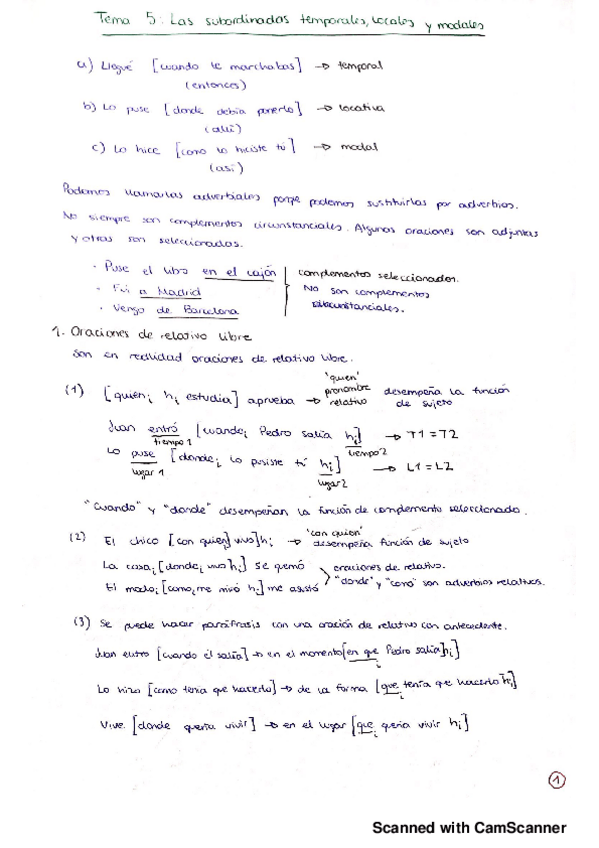 Tema 5: Las subordinadas temporales, locales y modales
a) Llegué [cuando te marchabas] → temporal
(entonces)
b) Lo puse [donde debía ponerlo] → locativa
(allí)
c) Lo hice [como lo hiciste tú] → modal
(así)
Podemos llamarlas adverbiales porque podemos sustituirlas por adverbios.
No siempre son complementos circunstanciales. Algunas oraciones son adjuntas
y otras son seleccionadas.
· Puse el libro en el cajón
· Fui a Madrid
· Vengo de Barcelona
complementos seleccionados.
No son complementos
circunstanciales.
1. Oraciones de relativo libre
Son en realidad oraciones de relativo libre.
(1) [quien i h i estudia] aprueba → "quien" pronombre relativo desempeña la función de sujeto
Juan entró [cuando i Pedro salía h i] → T1 = T2
tiempo 1 tiempo 2
Lo puse [donde i lo pusiste tú h i] → L1 = L2
lugar 1 lugar 2
"Cuando" y "donde" desempeñan la función de complemento seleccionado.
(2) El chico [con quien i vivo h i] → "con quien" desempeña función de sujeto
La casa i [donde i vivo h i] se quemó
El modo i [como i me miró h i] me asustó
oraciones de relativo.
"donde" y "como" son adverbios relativos.
(3) Se puede hacer paráfrasis con una oración de relativo con antecedente.
Juan entró [cuando él salía] → en el momento [en que i Pedro salía h i]
Lo hizo [como tenía que hacerlo] → de la forma [que i tenía que hacerlo h i]
Vive [donde quería vivir] → en el lugar [que i quería vivir h i]
1
Scanned with CamScanner